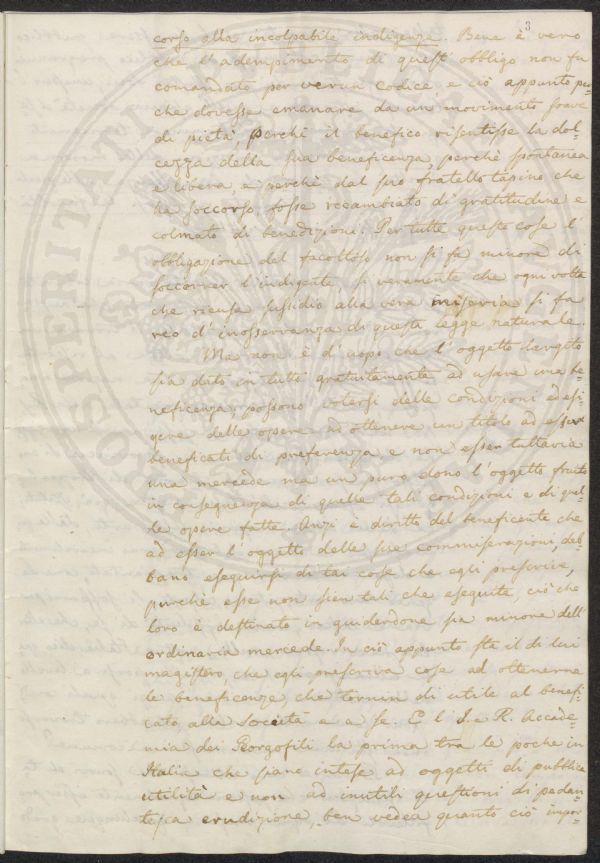 3
corso alla incolpabile indigenza. Bene è vero
che l'adempimento di quest'obbligo non fu
comandato per verun codice, e ciò appunto per-
che dovesse emanare da un movimento soave
di pietà, perchè il benefico risentisse la dol-
cezza della sua beneficenza, perchè spontanea
e libera, e perchè dal suo fratello tapino che
ha soccorso, fosse ricambiato di gratitudine e
colmato di benedizioni. Per tutte queste cose l'
obbligazione del facoltoso non si fa minore di
soccorrer l'indigente, sì veramente che ogni volta
che ricusa sussidio alla vera miseria si fa
reo d'inosservanza di questa legge naturale.
Ma non è d'uopo che l'oggetto largito
sia dato in tutto gratuitamente ad usare una be-
neficenza; possono volersi delle condizioni ed esi-
gere delle opere ad ottenere un titolo ad esser
beneficati di preferenza e non esser tuttavia
una mercede ma un puro dono l'oggetto fruito
in conseguenza di quelle tali condizioni e di quel-
le opere fatte. Anzi è diritto del beneficente che
ad esser l'oggetto delle sue commiserazioni, deb-
bano eseguirsi di tai cose che egli prescrive,
purchè esse non sien tali che eseguite, ciò che
loro è destinato in guiderdone sia minore dell'
ordinaria mercede. In ciò appunto sta il di lui
magistero, che egli prescriva cose ad ottenerne
le beneficenze, che tornin di utile al benefi-
cato, alla Società e a se. E l'I. e R. Accade-
mia dei Georgofili la prima tra le poche in
Italia che siano intese ad oggetti di pubblica
utilità e non ad inutili questioni di pedan-
tesca erudizione, ben vedea quanto ciò impor-
PROSPERITATI